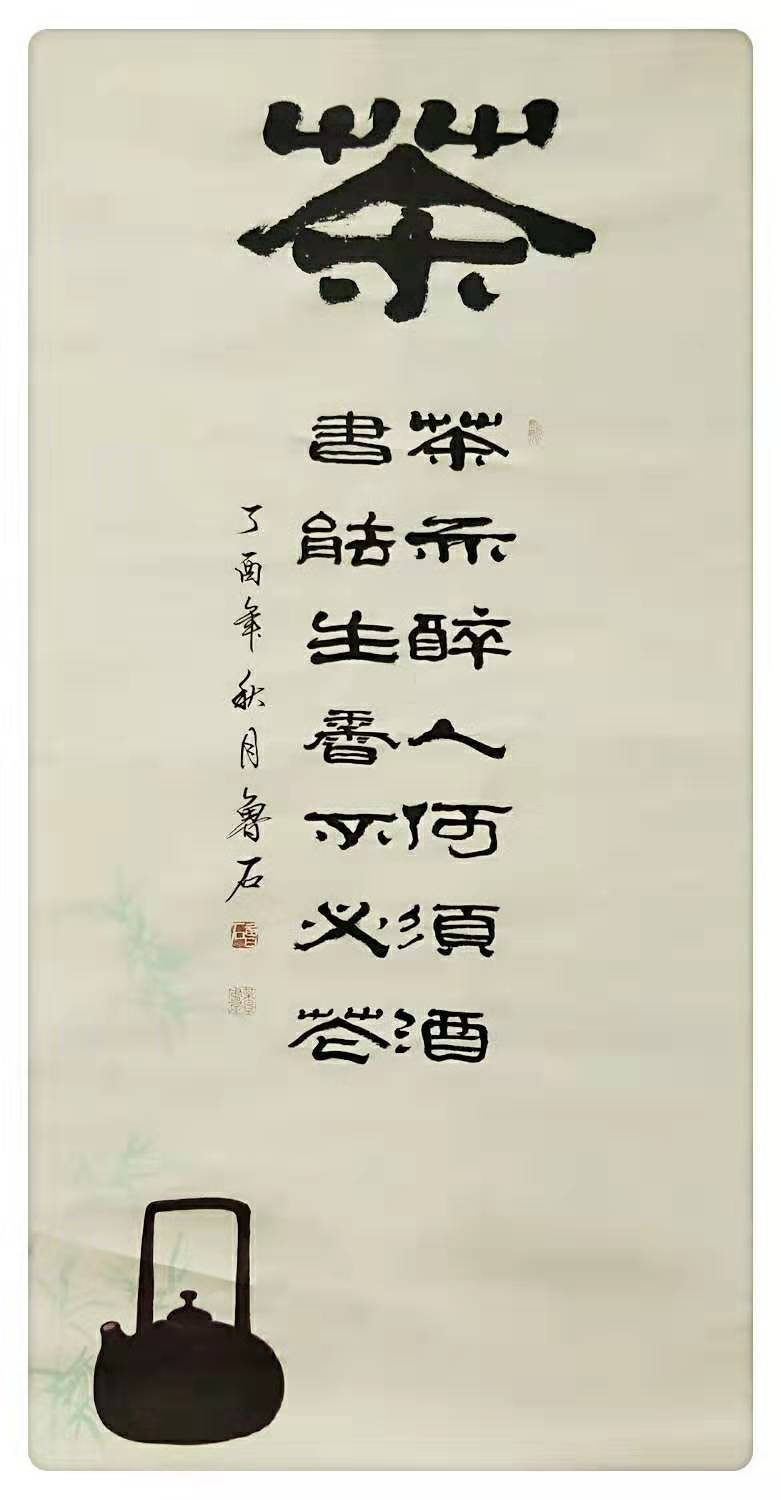 茶
茶亦醉人何须酒
書能生香不必花
丁酉年秋月鲁石